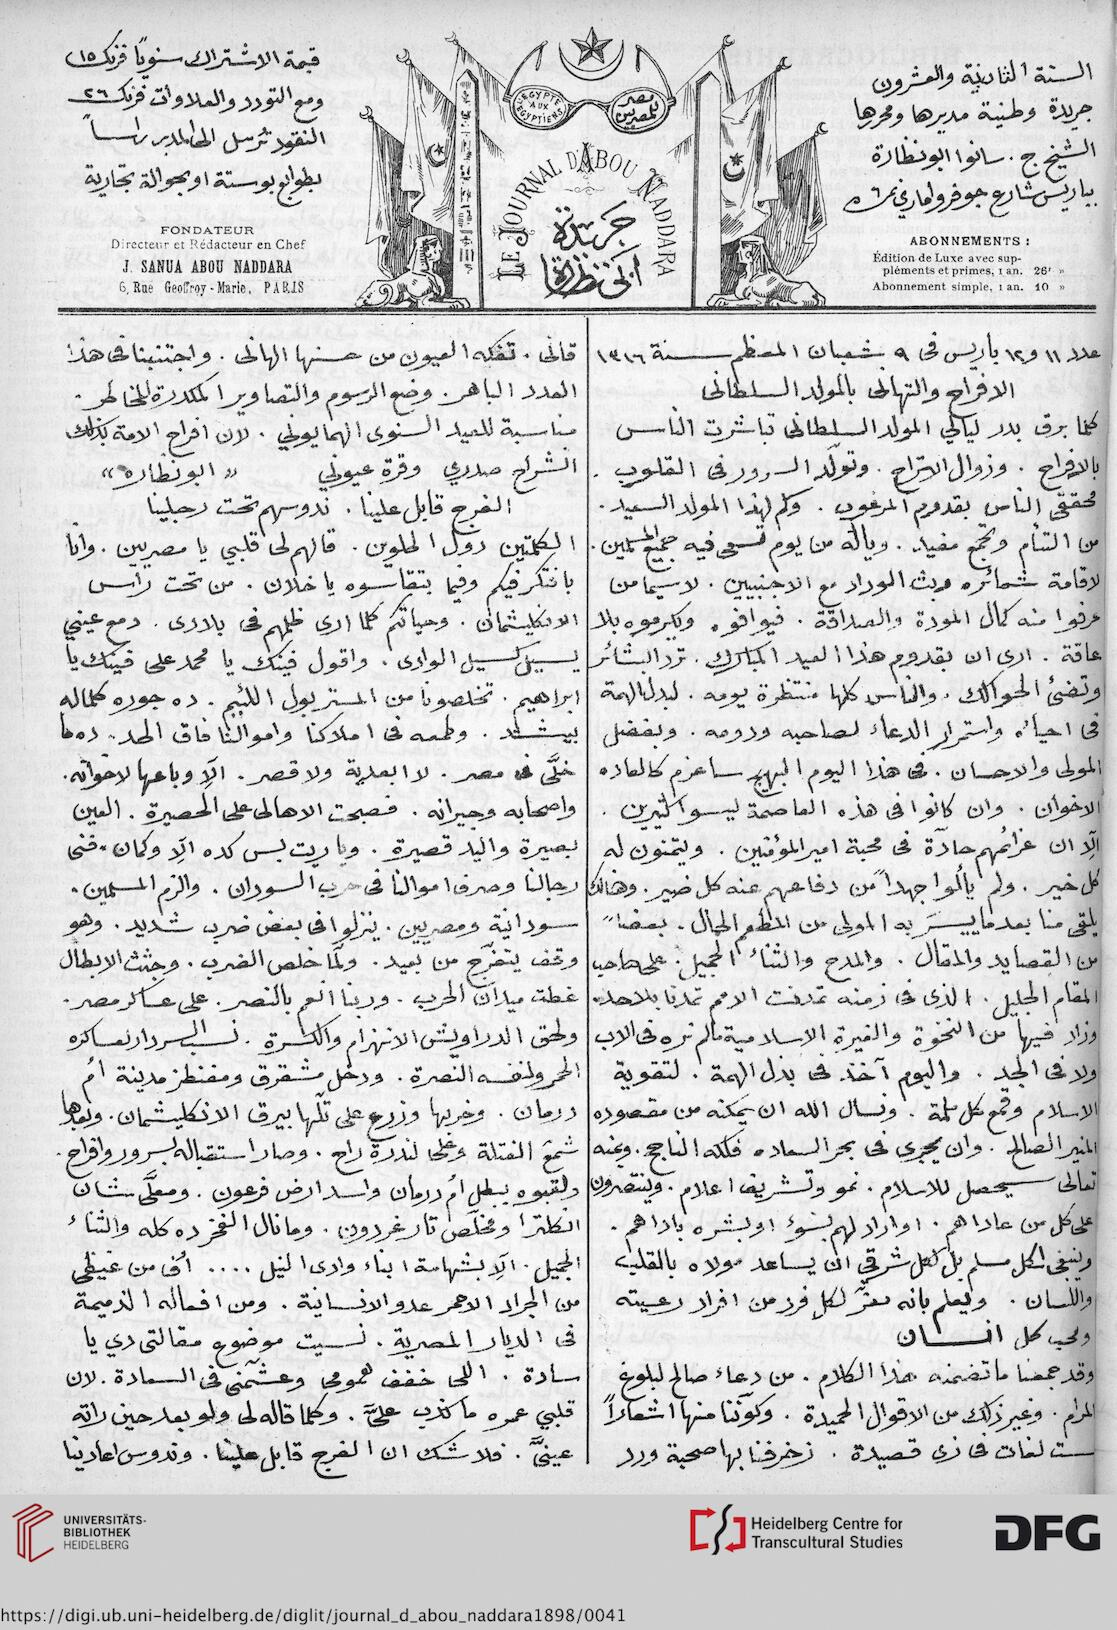 السنة الثانية والعشرون
جريدة وطنية مديرها ومحررها
الشيخ ج. سانوا ابونظارة
بباريس شارع جوفروا ماري نمرة ٦
ABONNEMENTS :
Édition de Luxe avec sup-
pléments et primes, 1 an. 26f »
Abonnement simple, 1 an. 10 »
L'EGYPTE
AUX
EGYPTIENS
مصر
للمصريين
LE JOURNAL D'ABOU NADDARA
جريدة
ابي نظارة
قيمة الاشتراك سنويًا فرنك ١٥
ومع التودد والعلاوات فرنك ٢٦
النقود ترسل الى المدير راساً
بطوابع بوستة او بحوالة تجارية
FONDATEUR
Directeur et Rédacteur en Chef
J. SANUA ABOU NADDARA
6, Rue Geoffroy - Marie, PARIS
عدد ١١ و١٢ باريس فى ٩ شعبان المعظم سنة ١٣١٦
الافراح والتهانى بالمولد السلطانى
كلما برق بدر ليالي المولد السلطانى تباشرت الناس
بالافراح . وزوال الاتراح . وتولّد السرور فى القلوب .
محققى الناس بقدوم المرغوب . وكم لهذا المولد السعيد .
من التئام وتجمع مفيد . وياله من يوم تسعى فيه جميع المسلمين .
لاقامة شعائره وبث الوداد مع الاجنبيين . لاسيما من
عرفوا منه كمال المودة والصداقة . فيوافوه ويكرموه بلا
عاقة . ارى ان بقدوم هذا العيد المبارك . ترد البشائر
وتضئ الحوالك . والناس كلها منتظرة يومه . لبذل الهمة
فى احيائه واستمرار الدعاء لصاحبه ودومه . وبفضل
المولى والاحسان . فى هذا اليوم البهيج ساعزم كالعاده
الاخوان . وان كانوا فى هذه العاصمة ليسوا كثيرين .
الّا ان عزائمهم حادّة فى محبة امير المؤمنين . ويتمنون له
كل خير . ولم يألوا جهداً من دفاعهم عنه كل ضير . وهنالك
يلقى منا بعد ما ييسر به المولى من المطعم الحلال . بعضاً
من القصايد والمقال . والمدح والثناء الجميل . على صاحب
المقام الجليل . الذى فى زمنه تمدنت الامم تمدنا بلا حد .
وزاد فيها من النخوة والغيرة الاسلامية مالم نره فى الاب
ولا فى الجد . واليوم آخذ فى بذل الهمة . لتقوية
الاسلام وقمع كل ملمة . ونسال الله ان يمكنه من مقصوده
المنير الصالح . وان يجرى فى بحر السعاده فلكه الناجح . وبمنه
تعالى سيحصل للاسلام . نمو وتشريف اعلام . وينتصرون
على كل من عاداهم . او اراد لهم بسوء او بشره باداهم .
وينبغى لكل مسلم بل لكل شرقي ان يساعد مولاه بالقلب
واللسان . ويعلم بانه معزّ لكل فرد من افراد رعيته
ومحب كل انسان
وقد جمعنا ما تضمنه هذا الكلام . من دعاء صالح لبلوغ
المرام . وغير ذلك من الاقوال الحميدة . وكوّنّا منها اشعاراً
ست لغات فى زى قصيدة . زخرفنا بها صحبة ورد
قانى . تفكه العيون من حسنها الهانى . واجتنبنا فى هذا
العدد الباهر . وضع الرسوم والتصاوير المكدرة للخاطر .
مناسبة للعيد السنوى الهمايوني . لان افراح الامة بذلك
انشراح صدري وقرة عيوني « ابونظاره »
الفرج قابل علينا . ندوسهم تحت رجلينا
الكلمتين دول الحلوين . قالهم لى قلبي يا مصريين . وانا
بافتكر فيكم وفيما بتقاسوه يا خلان . من تحت راس
الانكليشمان . وحياتكم كلما ارى ظلمهم فى بلادى . دمع عيني
يسيل كسيل الوادى . واقول فينك يا محمد على فينك يا
ابراهيم . تخلصونا من المستر بول اللئيم . ده جوره كلماله
بيشتد . وطمعه فى املاكنا واموالنا فاق الحد . ده ما
خلّى فى مصر . لا ابعدية ولا قصر . الّا وباعها لاخواته .
واصحابه وجيرانه . فصبحت الاهالى على الحصيرة . العين
بصيرة واليد قصيرة . وياريت بس كده الّا وكمان فنى
رجالنا وصرف اموالنا فى حرب السودان . والزم المسلمين .
سودانية ومصريين . ينزلوا فى بعض ضرب شديد . وهو
وقف يتفرّج من بعيد . ولمّا خلص الضرب . وجثث الابطال
غطت ميدان الحرب . وربنا انعم بالنصر . على عساكر مصر .
ولحق الدراويش الانهزام والكسرة . نسب السردار لعساكره
الحمر ولنفسه النصرة . ودخل متفرق ومفنطز مدينة أم
درمان . وخربها وزرع على تلّها بيرق الانكليشمان . وبعدها
شمّع الفتلة وعلى لندرة راح . وصار استقباله بسرور وافراح .
ولقبوه ببطل أم درمان واسد ارض فرعون . ومعلّى شان
انكلترا ومخلّص تار غردون . وما نال الفخر ده كله والثناء
الجميل . الّا بشهامة ابناء وادى النيل .... أف من غيظى
من الجراد الاحمر عدو الانسانية . ومن افعاله الذميمة
فى الديار المصرية . نسيت موضوع مقالتى دي يا
سادة . اللى خفف همومى وعشّمنى فى السعادة . لان
قلبي عمره ما كذب علىّ . وكلما قاله لى ولو بعد حين راته
عينىّ . فلا شك ان الفرج قابل علينا . وندوس اعادينا
UNIVERSITÄTS-
BIBLIOTHEK
HEIDELBERG
Heidelberg Centre for
Transcultural Studies
DFG
https://digi.ub.uni-heidelberg.de/diglit/journal_d_abou_naddara1898/0041